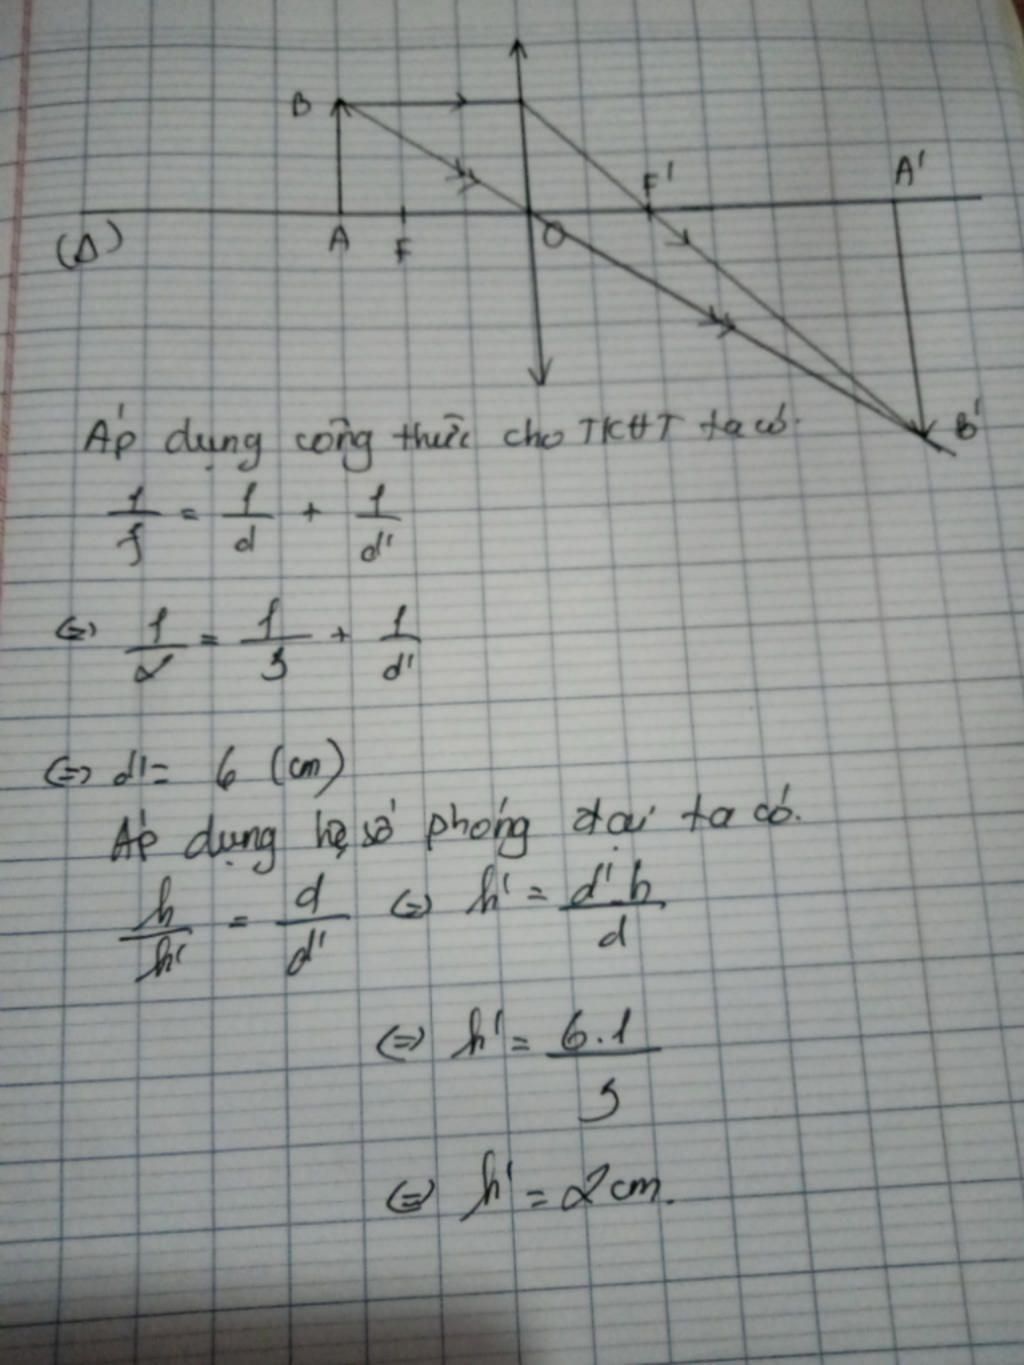 B
F'
A'
(Δ)
A
F
O
B'
Áp dụng công thức cho TKHT ta có:
1/f = 1/d + 1/d'
⇔ 1/2 = 1/3 + 1/d'
⇔ d' = 6 (cm)
Áp dụng hệ số phóng đại ta có.
h/h' = d/d' ⇔ h' = d'.h/d
⇔ h' = 6.1/3
⇔ h' = 2cm.